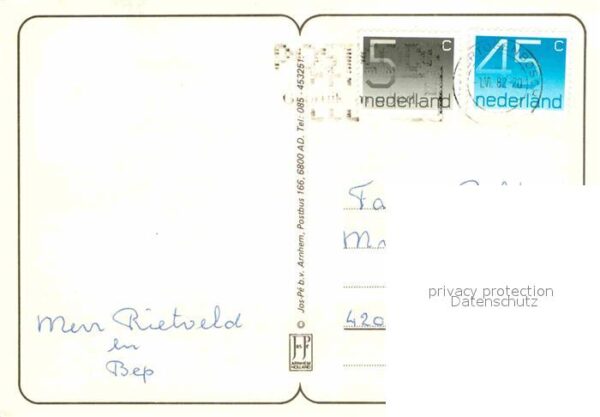 5 c
nederland
45 c
nederland
© Jos-Pé b.v. Arnhem, Postbus 166, 6800 AD. Tel: 085 - 453251
Fa
privacy protection
Datenschutz
420
Rietveld
en
Bep
ARNHEM
HOLLAND